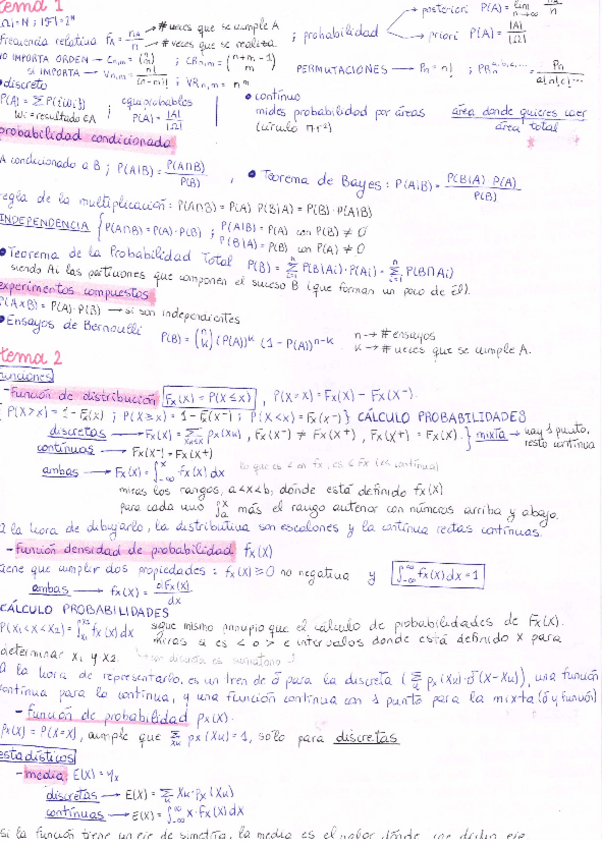 tema 1
|Ω|=N ; |F|=2ᴺ
posteriori P(A) = lim n→∞ nA/n
frecuencia relativa fA = nA/n → # veces que se cumple A → # veces que se realiza ; probabilidad
priori P(A) = |A|/|Ω|
NO IMPORTA ORDEN → Cn,m = (n m) ; CRn,m = (n+m-1 m)
SI IMPORTA → Vn,m = n!/(n-m)! ; VRn,m = nᵐ
PERMUTACIONES → Pn = n! ; PRn a,b,c,... = Pn/a!b!c!...
• discreto
P(A) = Σ P({wi}) ; equiprobables P(A) = |A|/|Ω|
wi = resultado ∈ A
• continuo
mides probabilidad por áreas área donde quieres caer / área total
(círculo π·r²)
probabilidad condicionada
A condicionado a B ; P(A|B) = P(A∩B)/P(B) , • Teorema de Bayes : P(A|B) = P(B|A)·P(A)/P(B)
regla de la multiplicación : P(A∩B) = P(A)·P(B|A) = P(B)·P(A|B)
INDEPENDENCIA { P(A∩B) = P(A)·P(B) ; P(A|B) = P(A) con P(B) ≠ 0
P(B|A) = P(B) con P(A) ≠ 0
• Teorema de la Probabilidad Total P(B) = Σ P(B|Ai)·P(Ai) = Σ P(B∩Ai)
siendo Ai las particiones que componen el suceso B (que forman un poco de él).
experimentos compuestos
P(A×B) = P(A)·P(B) → si son independientes
• Ensayos de Bernoulli P(B) = (n k) (P(A))ᵏ (1-P(A))ⁿ⁻ᵏ n → # ensayos
k → # veces que se cumple A.
tema 2
funciones
- función de distribución Fx(x) = P(X≤x) , P(X=x) = Fx(x) - Fx(x⁻).
{ P(X>x) = 1-Fx(x) ; P(X≥x) = 1-Fx(x⁻) ; P(X<x) = Fx(x⁻) } CÁLCULO PROBABILIDADES
discretas → Fx(x) = Σ px(xk) , Fx(x⁻) ≠ Fx(x⁺) , Fx(x⁺) = Fx(x). } mixta → hay 1 punto, resto continua
continuas → Fx(x⁻) = Fx(x⁺)
ambas → Fx(x) = ∫ fx(x) dx
miras los rangos, a<x<b, dónde está definido fx(x)
para cada uno ∫ más el rango anterior con números arriba y abajo.
a la hora de dibujarlo, la distributiva son escalones y la continua rectas continuas.
- función densidad de probabilidad fx(x)
tiene que cumplir dos propiedades : fx(x) ≥ 0 no negativa y ∫ fx(x) dx = 1
ambas → fx(x) = dFx(x)/dx
CÁLCULO PROBABILIDADES
P(x1<X<x2) = ∫ fx(x) dx sigue mismo principio que el cálculo de probabilidades de Fx(x).
miras si es < o > e intervalos donde está definido x para
determinar x1 y x2.
a la hora de representarlo, es un tren de δ para la discreta (Σ px(xk)·δ(x-xk)), una función
continua para la continua, y una función continua con 1 punto para la mixta (δ y función)
- función de probabilidad px(x).
px(x) = P(X=x), cumple que Σ px(xk) = 1, solo para discretas
estadísticos
- media: E(X) = ηx
discretas → E(X) = Σ xk·px(xk)
continuas → E(X) = ∫ x·fx(x) dx
si la función tiene un eje de simetría, la media es el valor dónde